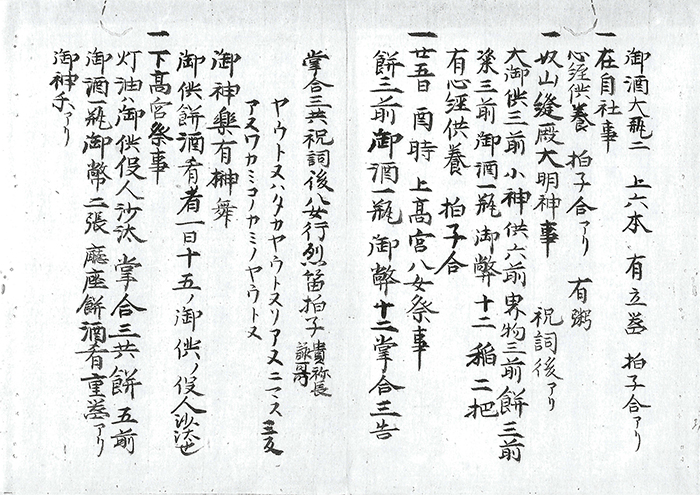 御酒大瓶二　上六本　有立盃　拍子合アリ
一在自社事
心経供養　拍子合アリ　有粥
一奴山縫殿大明神事　祝詞後アリ
大御供三前　小神供六前　
物三前餅三前
粢三前　御酒一瓶　御幣十二　稲二把
有心経供養　拍子合
一廿五日　酉時　上高宮八女祭事
餅三前　御酒一瓶　御幣十二掌合三告
掌合三共祝詞後八女行烈笛拍子
ヤウトヌハタカヤウトヌリアヌニマス　三反
アヌワカミコノカミノヤウトヌ
御神楽有榊舞
御供餅酒肴者一日十五ノ御供ノ役人沙汰也
一下高宮祭事
灯油ハ御供役人沙汰　掌合三共　餅五前
御酒一瓶　御幣二張　座餅酒肴重盃アリ
御神手アリ